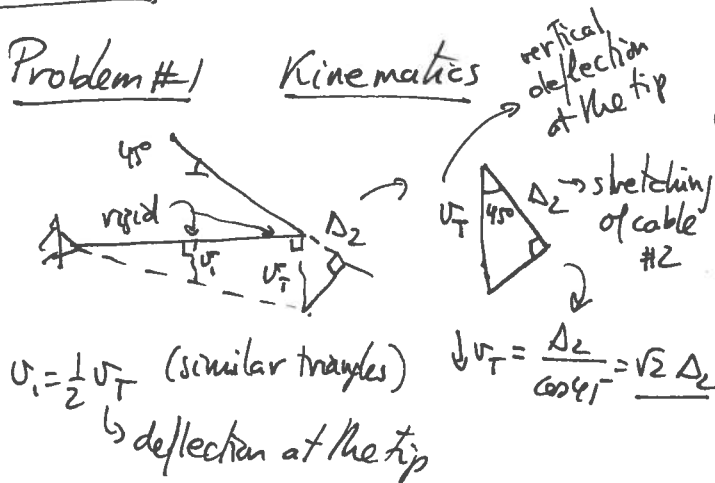 Problem #1 Kinematics
vertical
deflection
at the tip
45°
rigid
Δ₂
v₁
v_T
v_T
45°
Δ₂ → stretching
of cable
#2
v₁ = 1/2 v_T (similar triangles)
↳ deflection at the tip
↓ v_T = Δ₂ / cos45 = √2 Δ₂